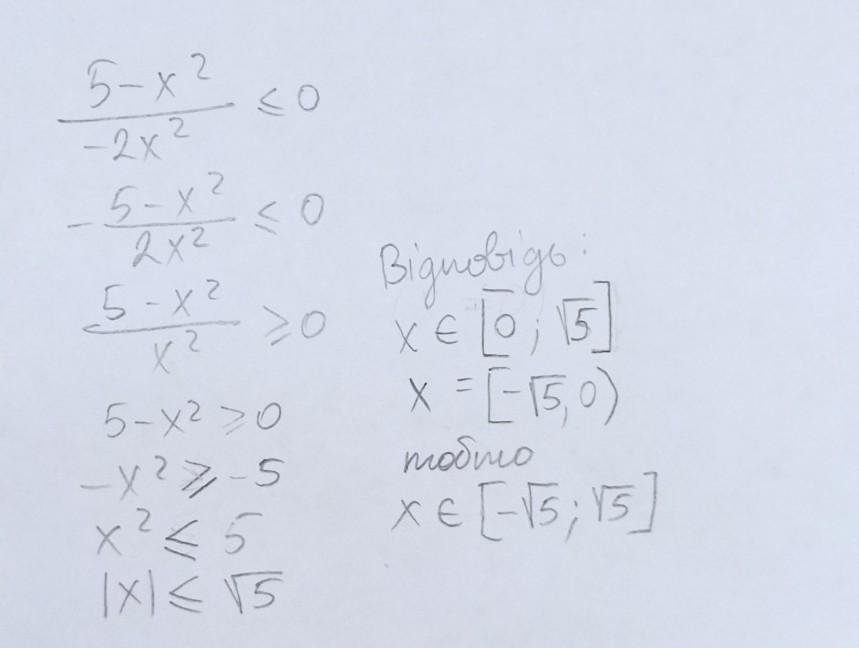 5-x² / -2x² ≤ 0
- 5-x² / 2x² ≤ 0
5-x² / x² ≥ 0
5-x² ≥ 0
-x² ≥ -5
x² ≤ 5
|x| ≤ √5
Відповідь:
x ∈ [0; √5]
x = [-√5, 0)
тобто
x ∈ [-√5; √5]